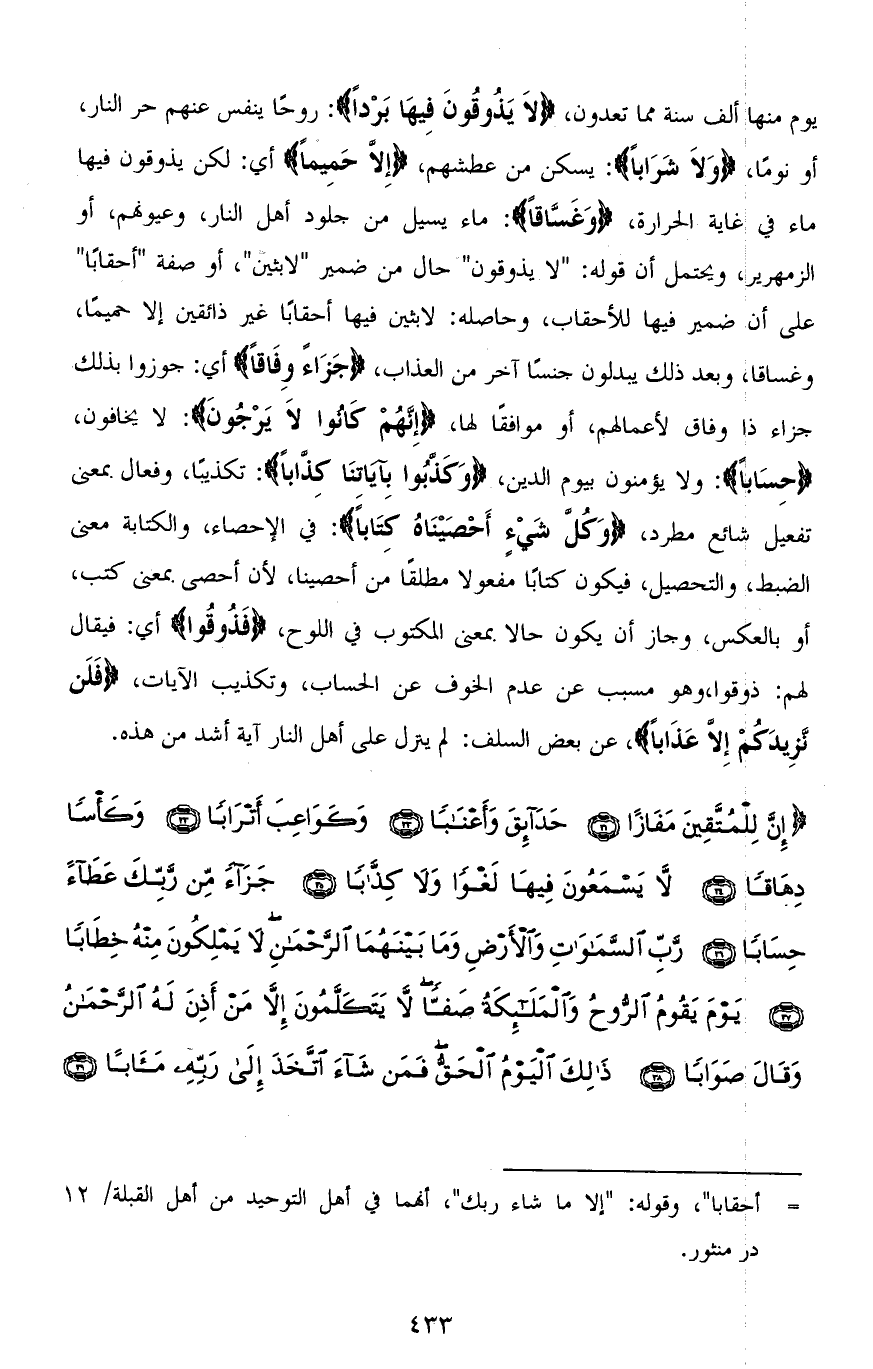 يوم منها ألف سنة مما تعدون، ﴿لاَ يَذُوقُونَ فِيهَا بَرْداً﴾: روحًا ينفس عنهم حر النار،
أو نومًا، ﴿وَلاَ شَرَاباً﴾: يسكن من عطشهم، ﴿إِلاَّ حَمِيماً﴾ أي: لكن يذوقون فيها
ماء في غاية الحرارة، ﴿وَغَسَّاقاً﴾: ماء يسيل من جلود أهل النار، وعيونهم، أو
الزمهرير، ويحتمل أن قوله: "لا يذوقون" حال من ضمير "لابثين"، أو صفة "أحقابًا"
على أن ضمير فيها للأحقاب، وحاصله: لابثين فيها أحقابًا غير ذائقين إلا حميمًا،
وغساقا، وبعد ذلك يبدلون جنسًا آخر من العذاب، ﴿جَزَاءً وِفَاقاً﴾ أي: جوزوا بذلك
جزاء ذا وفاق لأعمالهم، أو موافقًا لها، ﴿إِنَّهُمْ كَانُوا لاَ يَرْجُونَ﴾: لا يخافون،
﴿حِسَاباً﴾: ولا يؤمنون بيوم الدين، ﴿وَكَذَّبُوا بِآيَاتِنَا كِذَّاباً﴾: تكذيبًا، وفعال بمعنى
تفعيل شائع مطرد، ﴿وَكُلَّ شَيْءٍ أَحْصَيْنَاهُ كِتَاباً﴾: في الإحصاء، والكتابة معنى
الضبط، والتحصيل، فيكون كتابًا مفعولا مطلقًا من أحصينا، لأن أحصى بمعنى كتب،
أو بالعكس، وجاز أن يكون حالا بمعنى المكتوب في اللوح، ﴿فَذُوقُوا﴾ أي: فيقال
لهم: ذوقوا،وهو مسبب عن عدم الخوف عن الحساب، وتكذيب الآيات، ﴿فَلَن
نَّزِيدَكُمْ إِلاَّ عَذَاباً﴾، عن بعض السلف: لم ينزل على أهل النار آية أشد من هذه.
﴿إِنَّ لِلْمُتَّقِينَ مَفَازًا ٣١ حَدَآئِقَ وَأَعْنَٰبًا ٣٢ وَكَوَاعِبَ أَتْرَابًا ٣٣ وَكَأْسًا
دِهَاقًا ٣٤ لَّا يَسْمَعُونَ فِيهَا لَغْوًا وَلَا كِذَّٰبًا ٣٥ جَزَآءً مِّن رَّبِّكَ عَطَآءً
حِسَابًا ٣٦ رَّبِّ ٱلسَّمَٰوَٰتِ وَٱلْأَرْضِ وَمَا بَيْنَهُمَا ٱلرَّحْمَٰنِ ۖ لَا يَمْلِكُونَ مِنْهُ خِطَابًا
٣٧ يَوْمَ يَقُومُ ٱلرُّوحُ وَٱلْمَلَٰٓئِكَةُ صَفًّا ۖ لَّا يَتَكَلَّمُونَ إِلَّا مَنْ أَذِنَ لَهُ ٱلرَّحْمَٰنُ
وَقَالَ صَوَابًا ٣٨ ذَٰلِكَ ٱلْيَوْمُ ٱلْحَقُّ ۖ فَمَن شَآءَ ٱتَّخَذَ إِلَىٰ رَبِّهِۦ مَـَٔابًا ٣٩
= أحقابا"، وقوله: "إلا ما شاء ربك"، أنهما في أهل التوحيد من أهل القبلة/ ١٢
در منثور.
٤٣٣